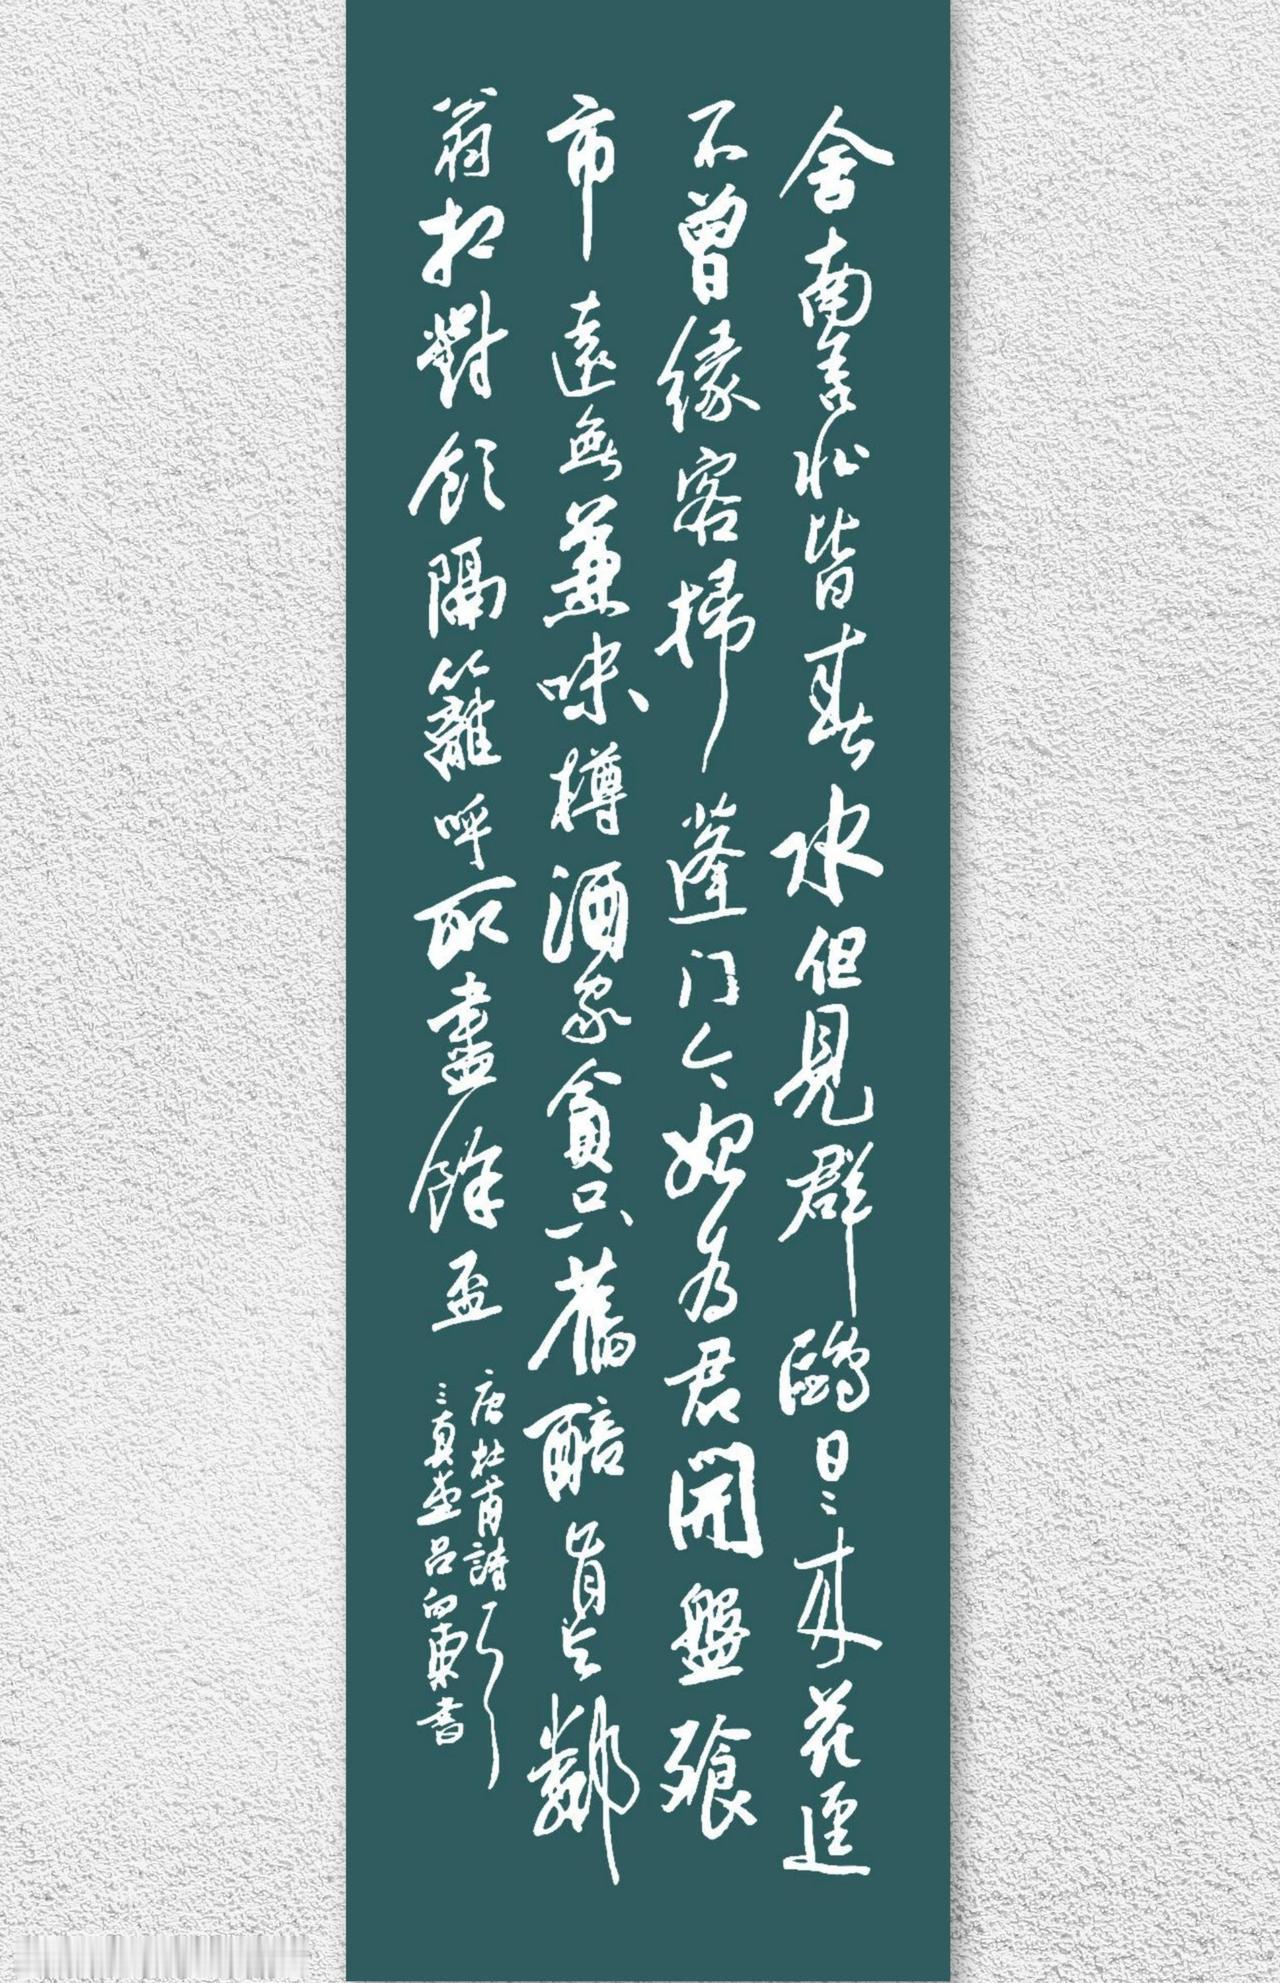 舍南舍北皆春水但見群鷗日〻来花逕
不曾緣客掃蓬门今始为君開盤飱
市遠無兼味樽酒家貧只舊醅肯与鄰
翁相對飲隔籬呼取盡餘杯
唐杜甫詩一首
三真堂吕向東書